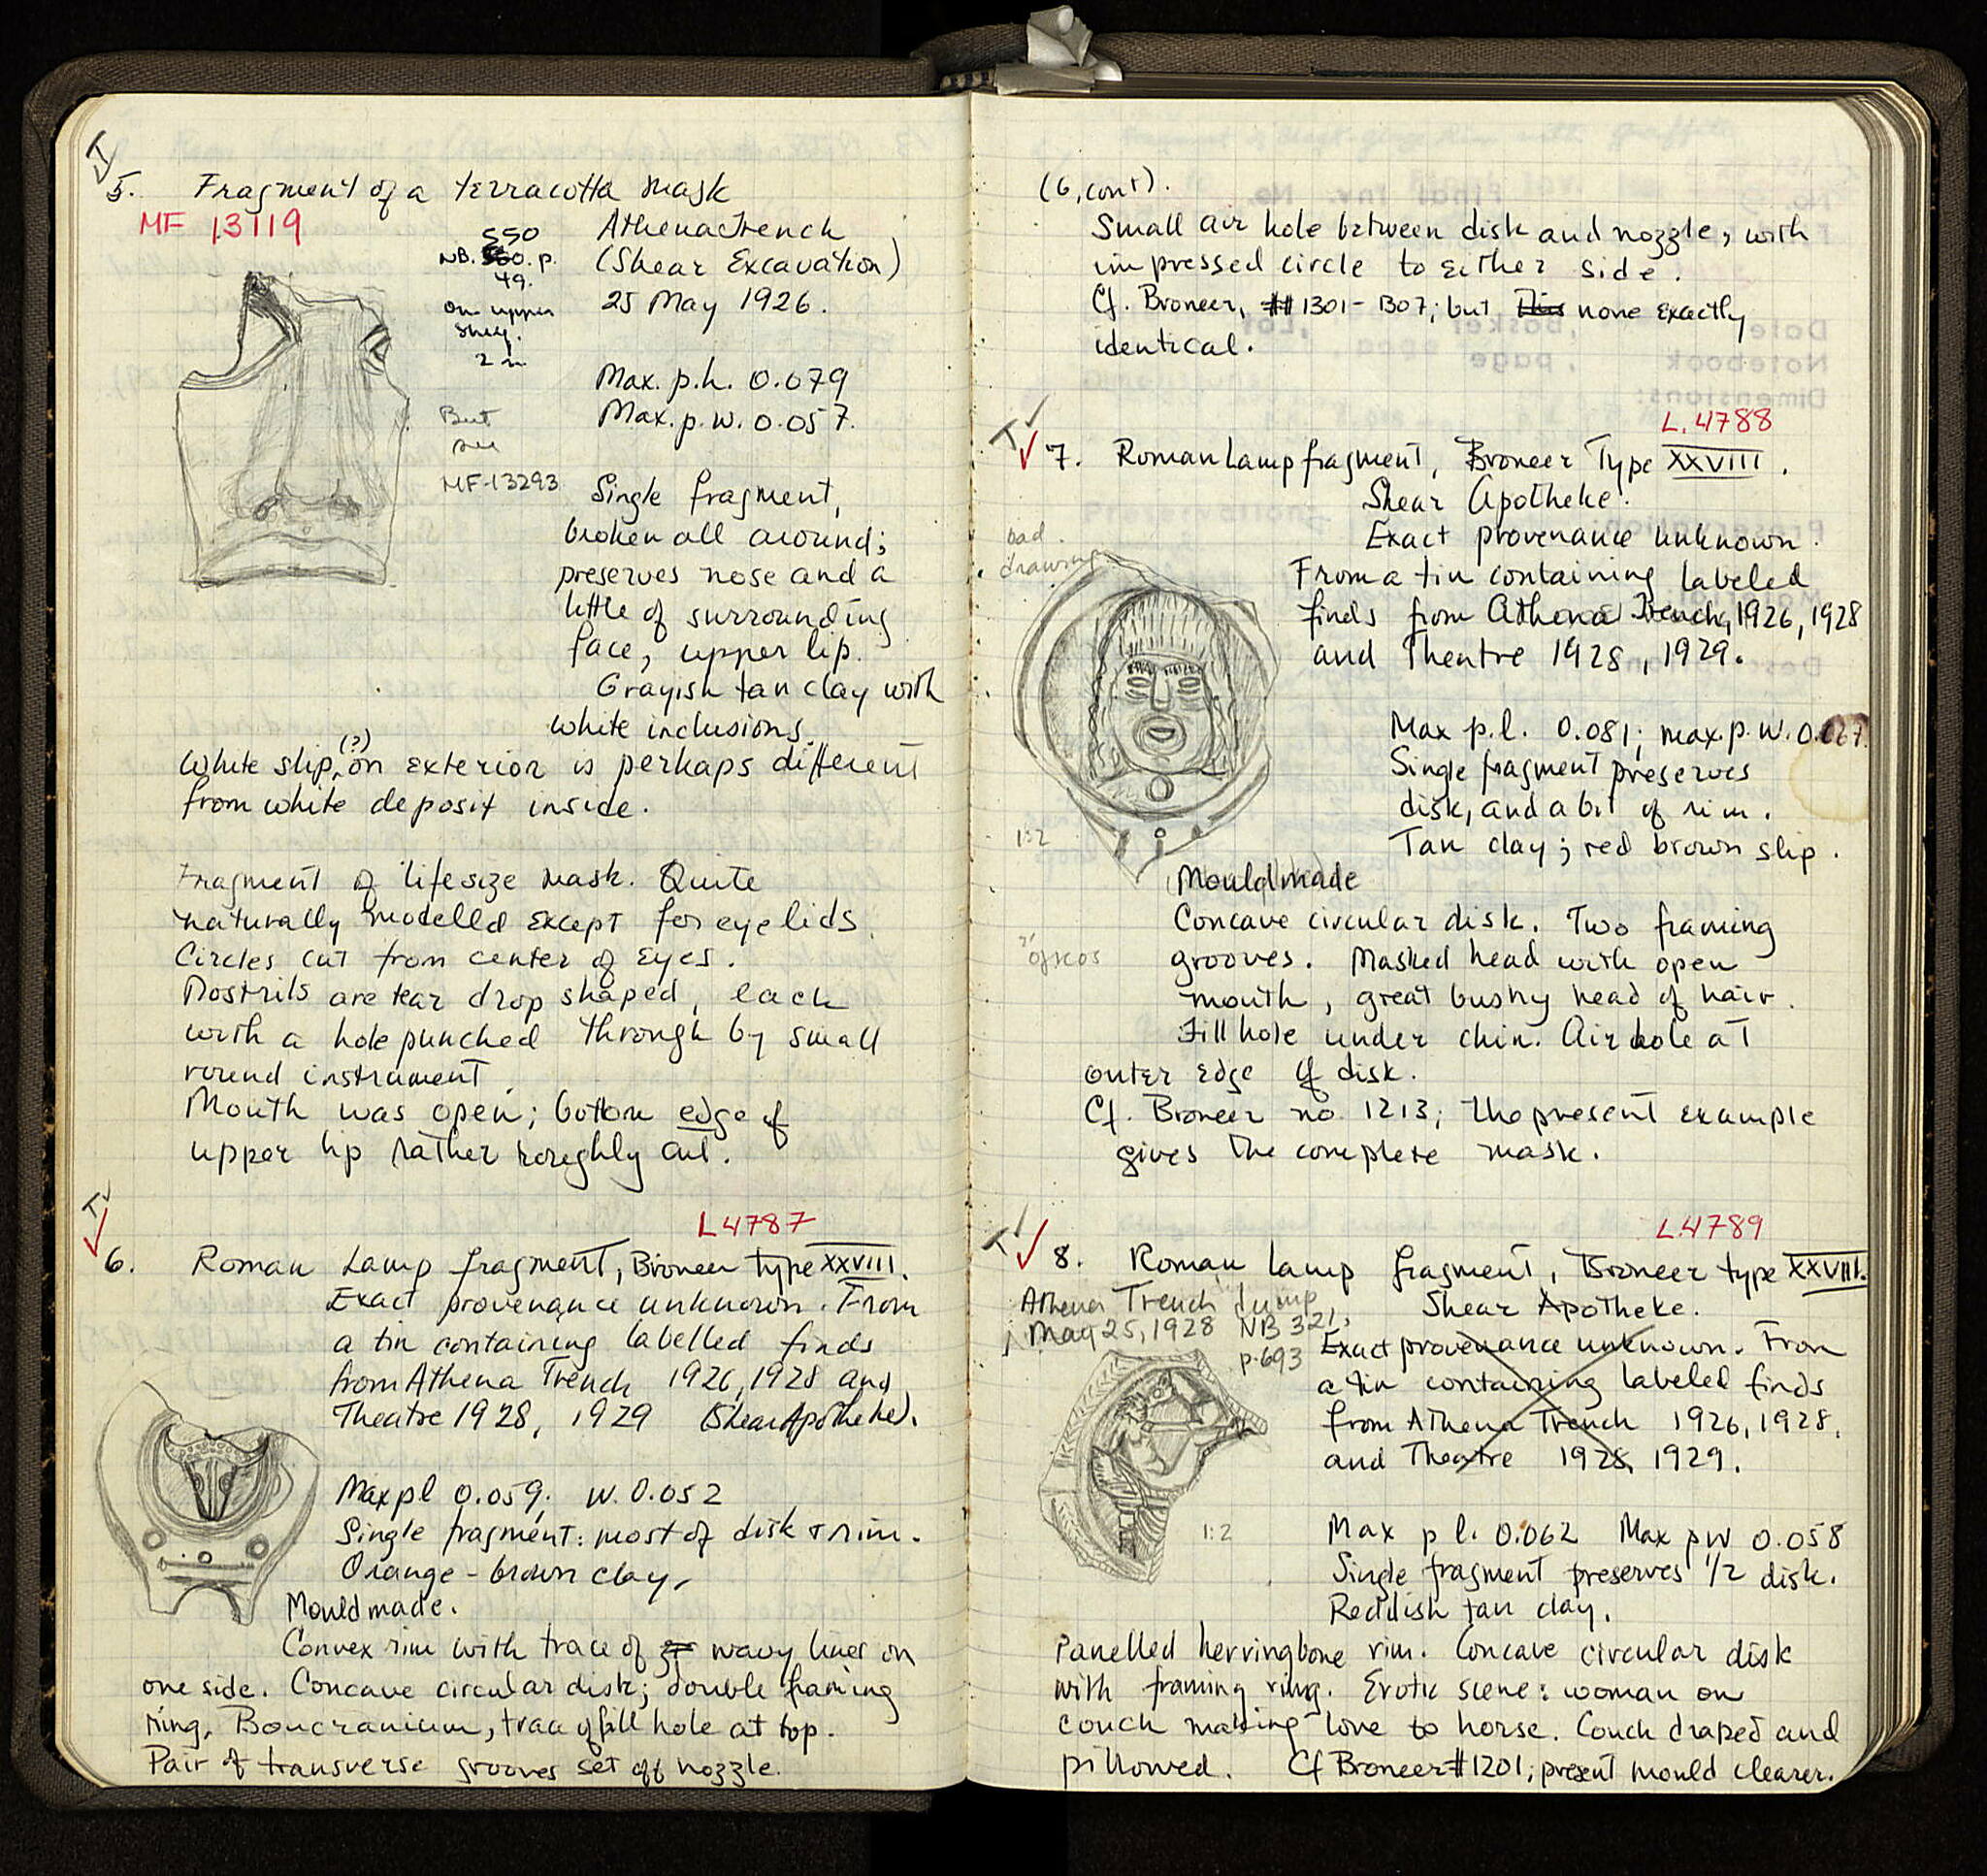 T
5. Fragment of a terracotta mask
MF 13119
550
NB. 550. p.
49.
On upper
shelf.
2 m
But
see
MF-13293
Athena Trench
(Shear Excavation)
25 May 1926.
Max. p.h. 0.079
Max. p.w. 0.057.
Single fragment,
broken all around;
preserves nose and a
little of surrounding
face, upper lip.
Grayish tan clay with
white inclusions.
White slip (?) on exterior is perhaps different
from white deposit inside.
Fragment of lifesize mask. Quite
naturally modelled except for eyelids.
Circles cut from center of eyes.
Nostrils are tear drop shaped, each
with a hole punched through by small
round instrument.
Mouth was open; bottom edge of
upper lip rather roughly cut.
T
L4787
6. Roman Lamp fragment, Broneer type XXVIII.
Exact provenance unknown. From
a tin containing labelled finds
from Athena Trench 1926, 1928 and
Theatre 1928, 1929 (Shear Apotheke).
Max p l 0.059; w. 0.052
Single fragment: most of disk + rim.
Orange-brown clay.
Mouldmade.
Convex rim with trace of wavy lines on
one side. Concave circular disk; double framing
ring. Boucranium, trace of fill hole at top.
Pair of transverse grooves set off nozzle.
(6, cont).
Small air hole between disk and nozzle, with
impressed circle to either side.
Cf. Broneer, ## 1301-1307; but This none exactly
identical.
L.4788
T
7. Roman Lamp fragment, Broneer Type XXVIII.
Shear Apotheke.
Exact provenance unknown.
bad
drawing
From a tin containing labeled
finds from Athena Trench, 1926, 1928
and Theatre 1928, 1929.
Max p.l. 0.081; max p.w. 0.067.
Single fragment preserves
disk, and a bit of rim.
1:2
Tan clay; red brown slip.
Mouldmade
Concave circular disk. Two framing
grooves. Masked head with open
mouth, great bushy head of hair.
Fill hole under chin. Air hole at
outer edge of disk.
Cf. Broneer no. 1213; the present example
gives the complete mask.
L.4789
T
8. Roman lamp fragment, Broneer type XXVIII.
Shear Apotheke.
Athena Trench dump,
May 25, 1928 NB 321,
p.693
Exact provenance unknown. From
a tin containing labeled finds
from Athena Trench 1926, 1928,
and Theatre 1928, 1929.
1:2
Max p l. 0.062 Max pw 0.058
Single fragment preserves 1/2 disk.
Reddish tan clay.
Panelled herringbone rim. Concave circular disk
with framing ring. Erotic scene: woman on
couch making love to horse. Couch draped and
pillowed. Cf Broneer #1201; present mould clearer.